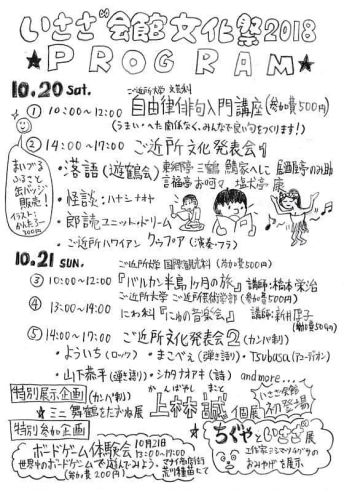 いさざ会館文化祭2018
★PROGRAM★
10.20 Sat.
ご近所大学 文芸科
① 10:00〜12:00 自由律俳句入門講座(参加費500円)
(うまい・へた関係なく、みんなで良い句をつくります!)
② 14:00〜17:00 ご近所文化発表会1
・落語(遊鶴会)
・怪談:ハナシナオヤ
・郎読ユニット・ドリーム
・ご近所ハワイアン クゥプア(演奏・フラ)
まいづる
ふるさと
缶バッジ
販売!
イラスト:
300円
10.21 SUN.
ご近所大学 国際観光科(参加費500円)
③ 10:00〜12:00 『バルカン半島1ヶ月の旅』 講師:橋本栄治
ご近所大学 ご近所芸術学部(参加費500円)
④ 13:00〜14:00 にわ科『こゆの音楽会』 講師:新井厚子
⑤ 14:00〜17:00 ご近所文化発表会2(カンパ制)
・よういち(ロック) ・まこべぇ(弾き語り)・Tsubasa(アコーディオン)
・山下恭平(弾き語り)・シカタナオアキ(詩) and more....
特別展示企画(カンパ制)
かんばやし まこと
★ミニ舞鶴をたずね展 上林誠個展
いさざ会館
初登場
特別参加企画
ボードゲーム体験会 10月21日 13:00〜17:00
世界中のボードゲームで遊んでみよう。
(参加費200円)
ちくやといさざ展
おみやげも展示